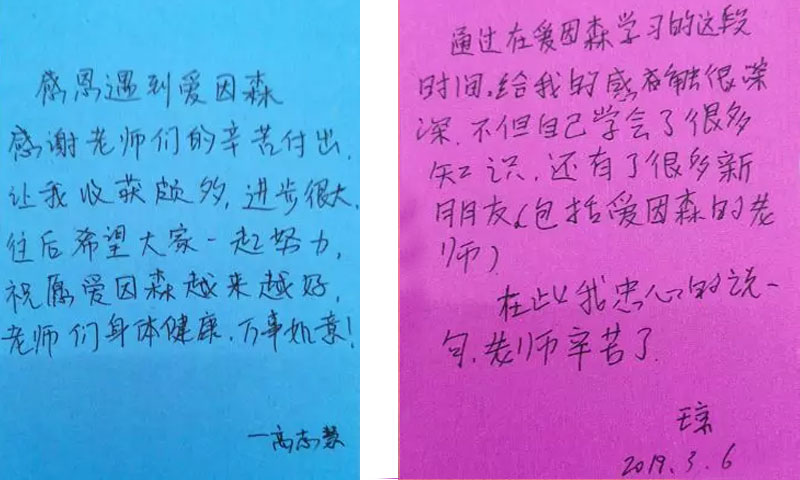 感恩遇到爱因森
感谢老师们的辛苦付出,
让我收获颇多,进步很大,
往后希望大家一起努力,
祝愿爱因森越来越好,
老师们身体健康,万事如意!
—高志慧
通过在爱因森学习的这段
时间,给我的感触很深
深,不但自己学会了很多
知识,还有了很多新
朋友(包括爱因森的老
师)
在此我忠心的说一
句,老师辛苦了
王京
2019.3.6